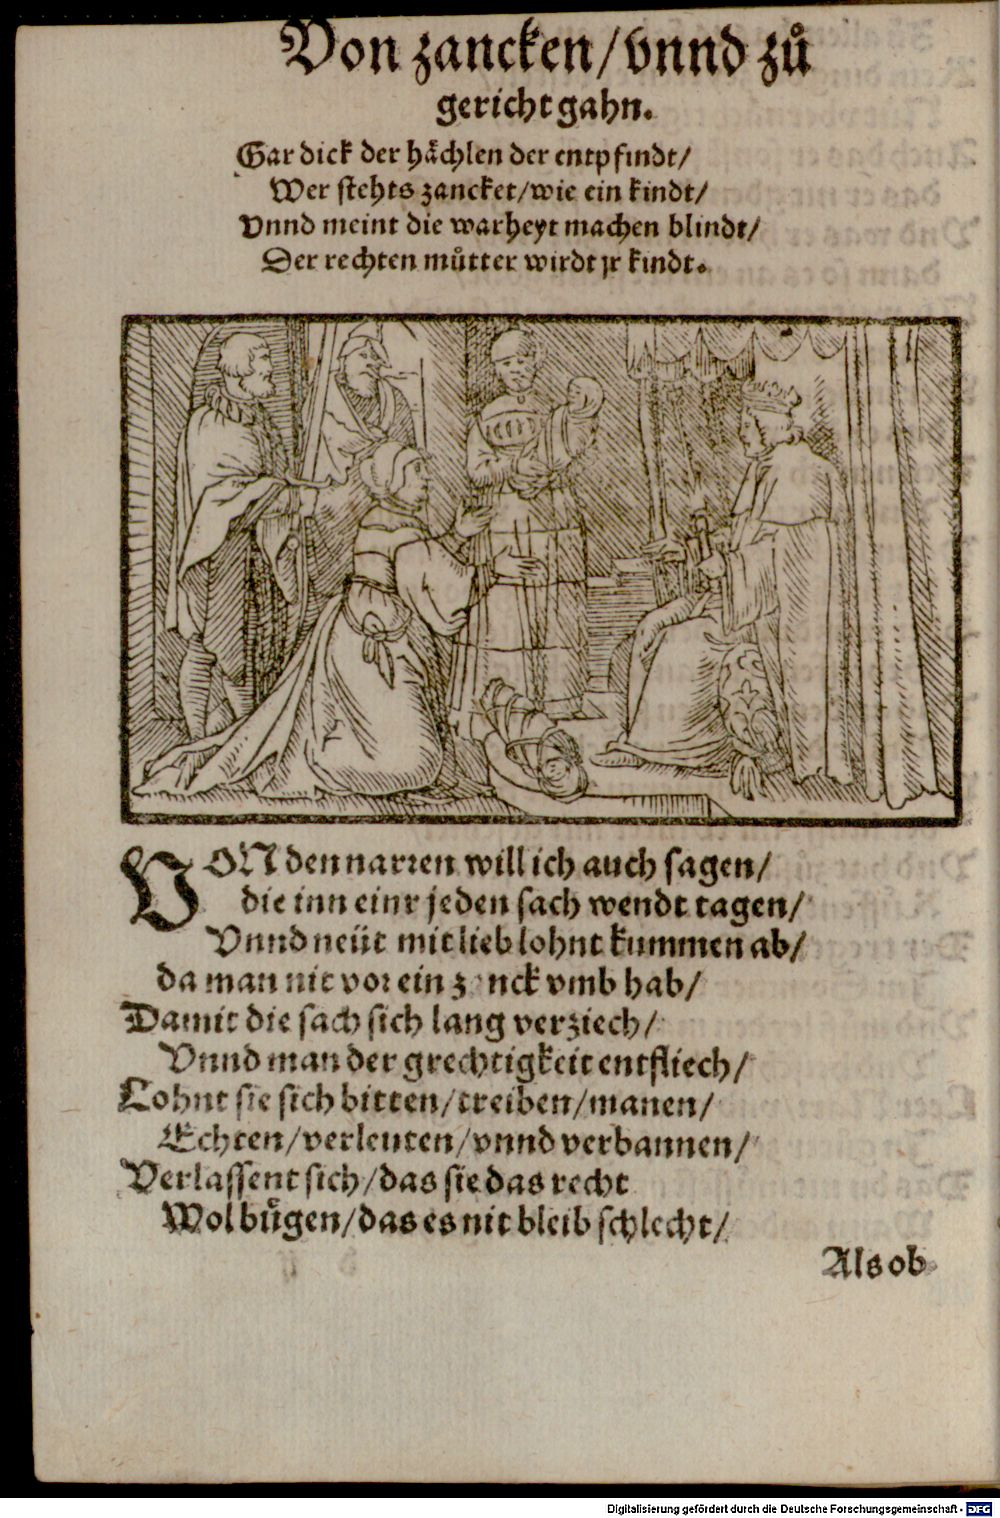 Von zancken/vnnd zů
gericht gahn.
Gar dick der hächlen der entpfindt/
Wer stehts zancket/wie ein kindt/
Vnnd meint die warheyt machen blindt/
Der rechten můtter wirdt jr kindt.
VON den narren will ich auch sagen/
die inn einr jeden sach wendt tagen/
Vnnd neüt mit lieb lohnt kummen ab/
da man nit vor ein zanck vmb hab/
Damit die sach sich lang verziech/
Vnnd man der grechtigkeit entfliech/
Lohnt sie sich bitten/treiben/manen/
Echten/verleuten/vnnd verbannen/
Verlassent sich/das sie das recht
Wol bügen/das es nit bleib schlecht/
Als ob
Digitalisierung gefördert durch die Deutsche Forschungsgemeinschaft - DFG